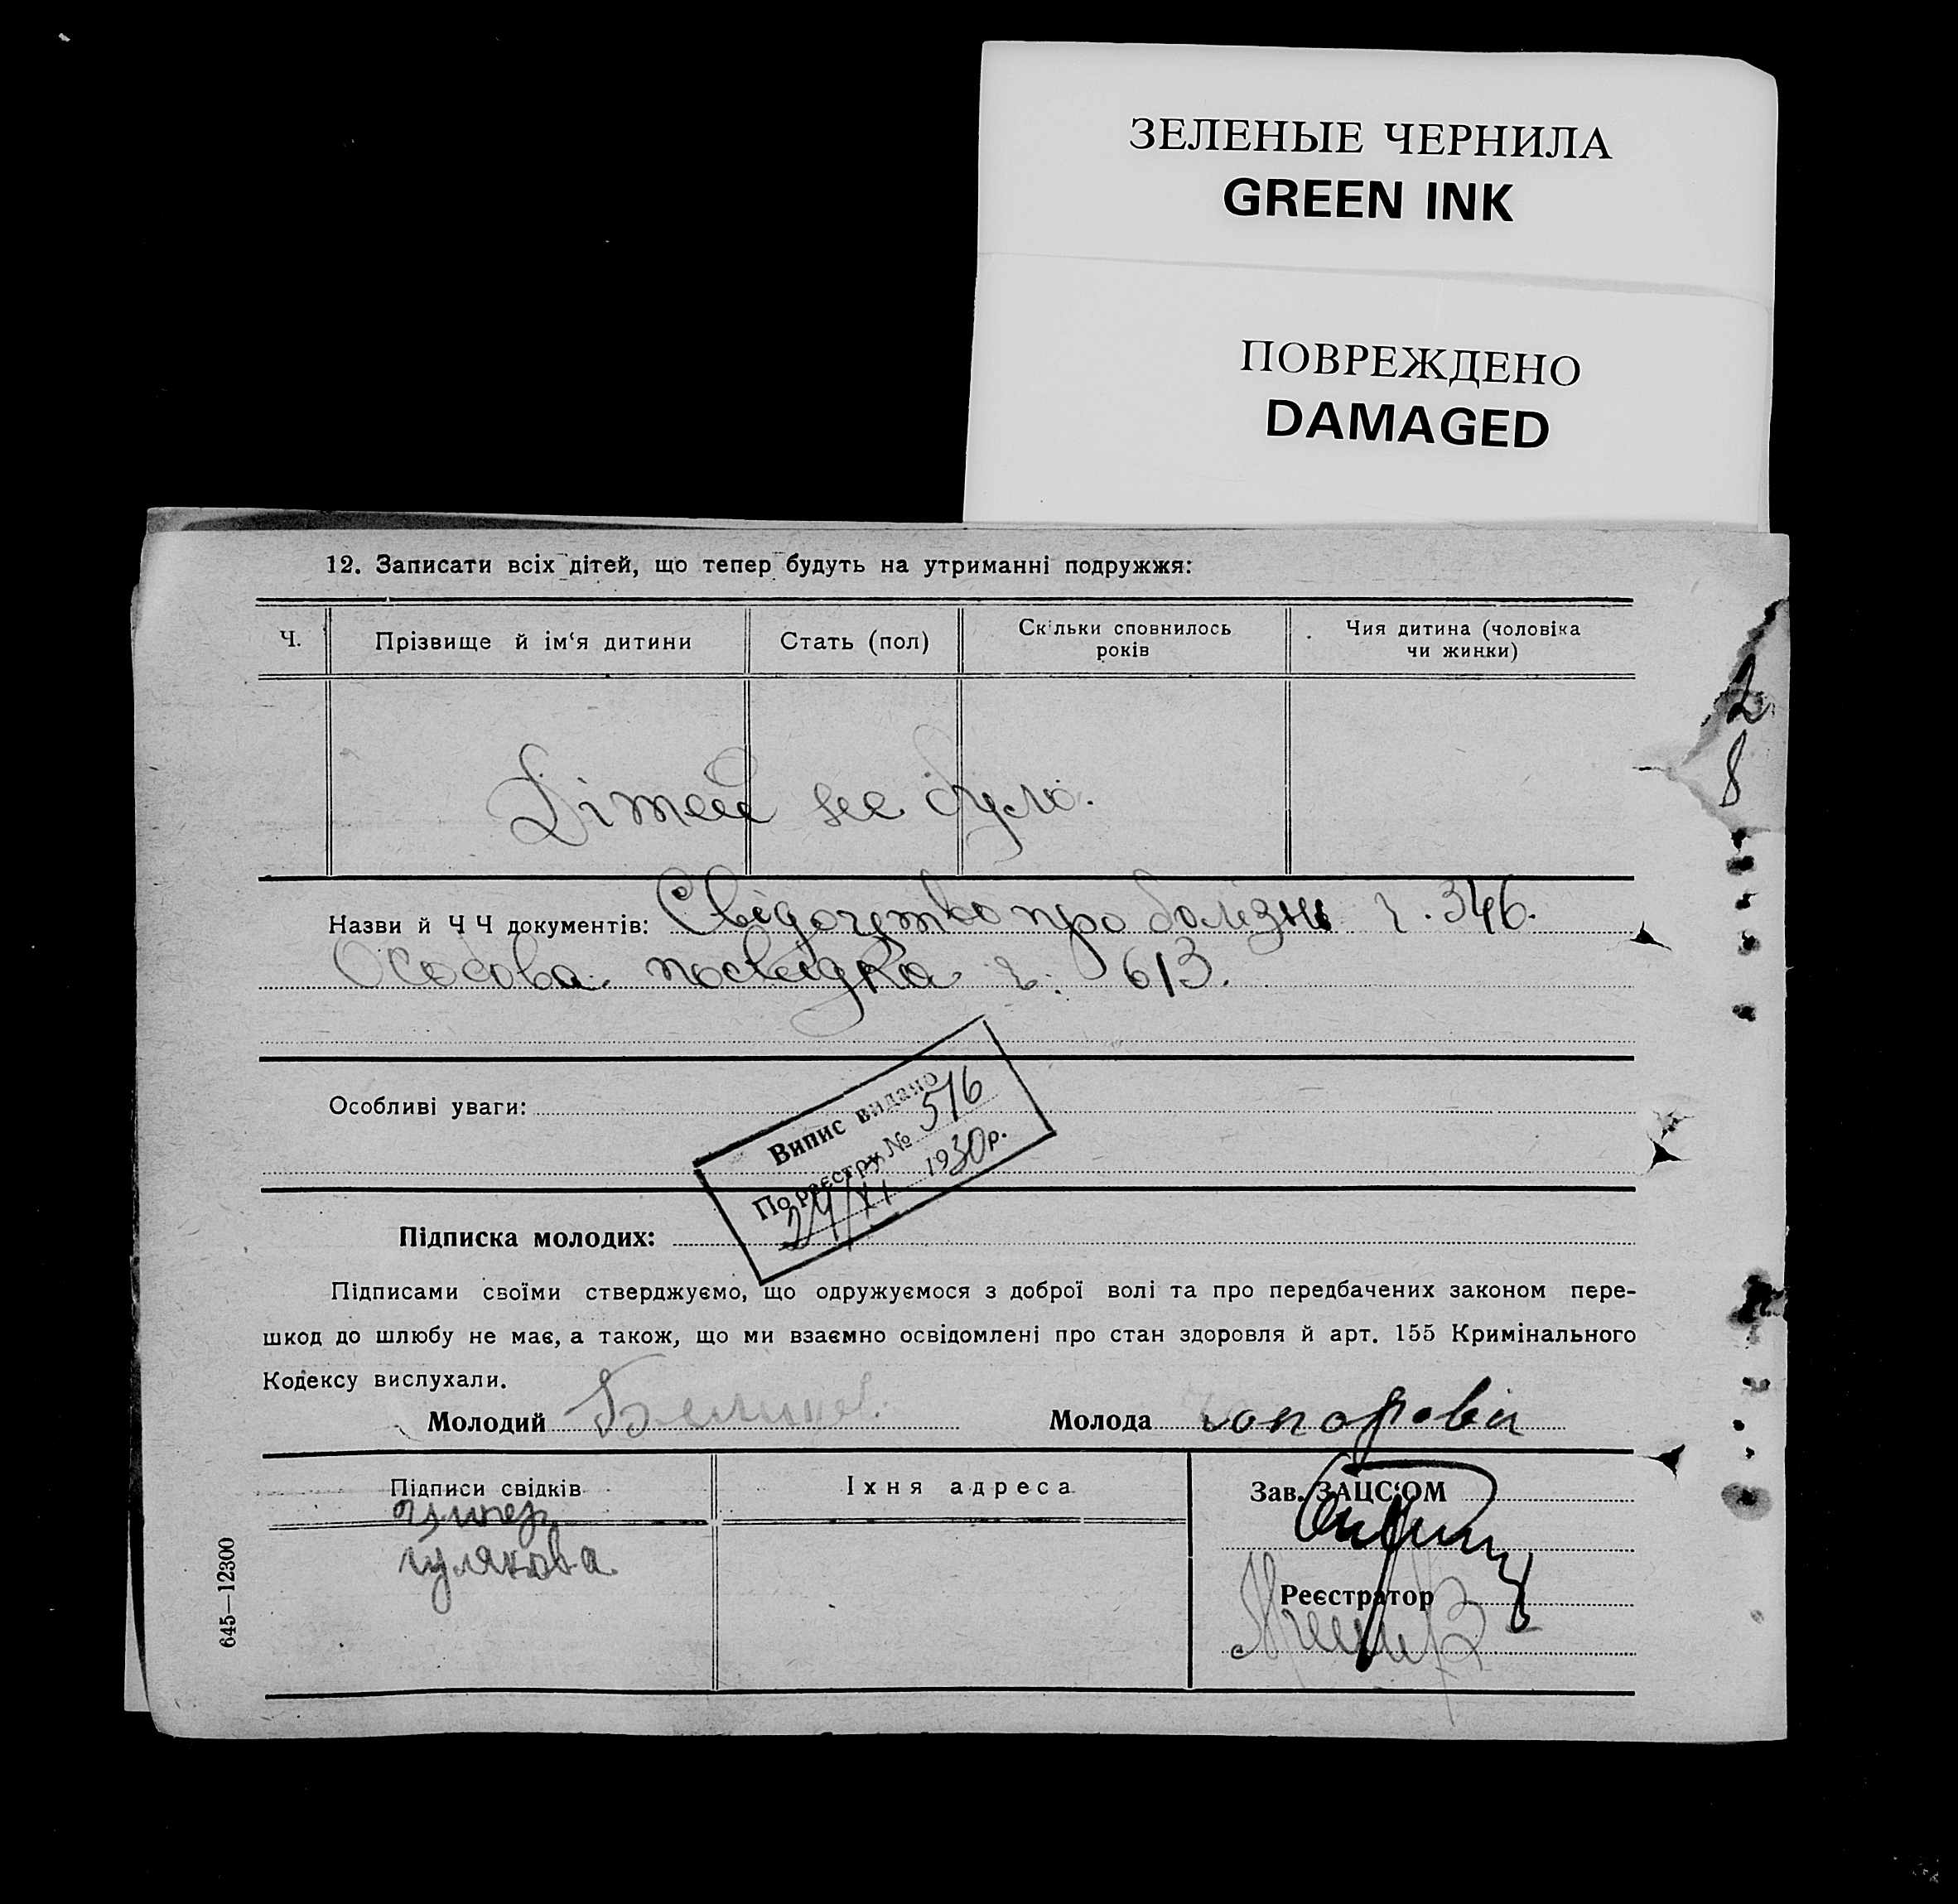 ЗЕЛЕНЫЕ ЧЕРНИЛА
GREEN INK
ПОВРЕЖДЕНО
DAMAGED
12. Записати всіх дітей, що тепер будуть на утриманні подружжя:
Ч. Прізвище й ім‘я дитини Стать (пол) Скільки сповнилось років Чия дитина (чоловіка чи жинки)
2
8
Дітей не було.
Назви й Ч Ч документів: Свідоцтво про болізні ч. 346.
Особова посвідка ч. 613.
Випис видано
По реєстру № 516
29/XI 1930 р.
Особливі уваги:
Підписка молодих:
Підписами своїми стверджуємо, що одружуємося з доброї волі та про передбачених законом пере-
шкод до шлюбу не має, а також, що ми взаємно освідомлені про стан здоровля й арт. 155 Кримінального
Кодексу вислухали.
Молодий Молода
Підписи свідків Іхня адреса Зав. ЗАЦС‘ОМ
гулякова
Реєстратор
645—12300